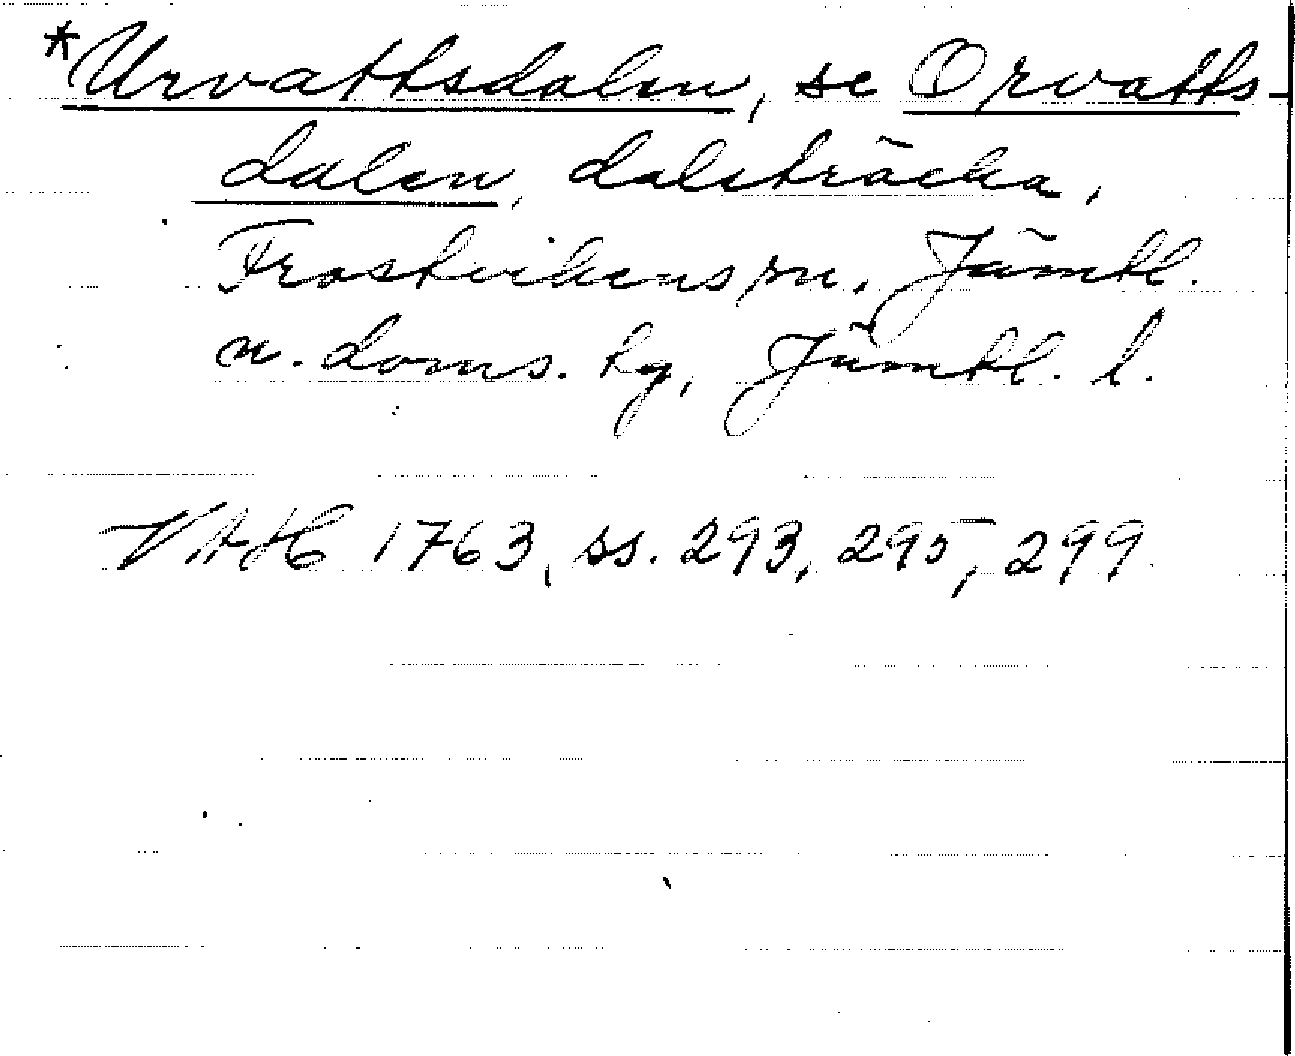 *Urvattsdalen, se Orvatts-
dalen, dalsträcka,
Frostvikens sn, Jämtl.
n. doms. tg, Jämtl. l.
VAH 1763, ss. 293, 295, 299